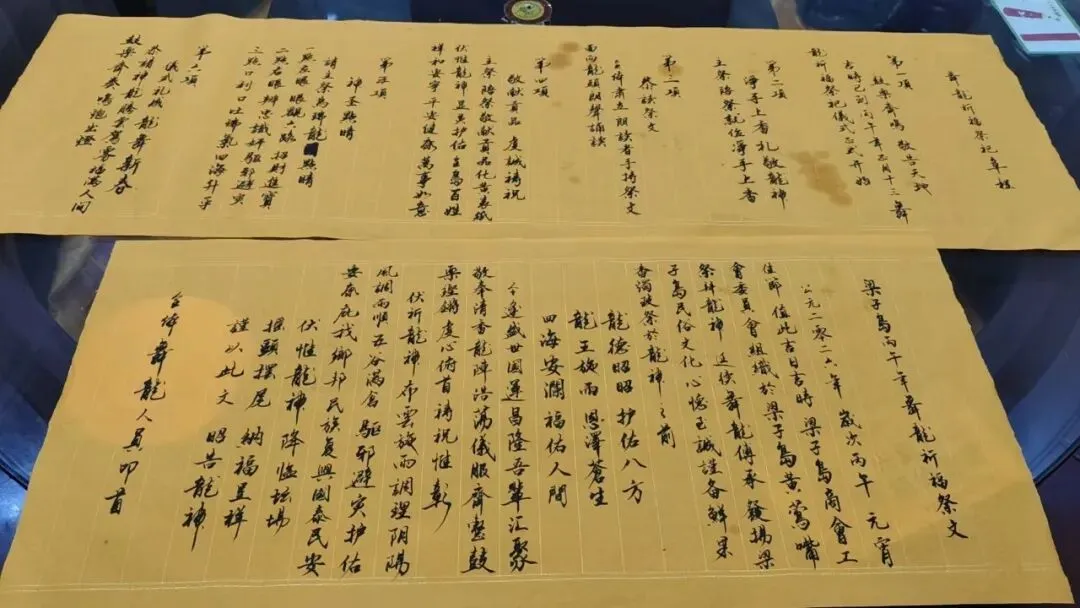 舞龍祈福祭祀章程
第一項
鼓樂齊鳴 敬告天地
吉時已到丙午年正月十三舞
龍祈福祭祀儀式正式开始
第二項
淨手上香 礼敬龍神
主祭陪祭就位淨手上香
第三項
恭讀祭文
全体肅立朗讀者手持祭文
面向龍頭朗聲誦讀
第四項
敬献貢品 虔誠禱祝
主祭陪祭敬献貢品化黄表纸
伏惟龍神显灵护佑全島百姓
祥和安寧平安健康萬事如意
第五項
神圣點睛
請主祭為瑞龍點睛
一點左眼眼觀六路 招財進寳
二點右眼辨忠識奸驅邪避灾
三點口利口吐祥氣四海升平
第六項
儀式礼成
恭請神龍騰雲駕霧 福滿人间
鼓樂齊奏鳴炮出燈
梁子島丙午年舞龍祈福祭文
公元二零二六年 歲次丙午 元宵
佳節 值此吉日吉時 梁子島黄鶯嘴
會委員會組織於梁子島商會工
祭拜龍神 延续舞龍傳承 發揚梁
子島民俗文化 心懷至誠謹备鮮果
香燭致祭於龍神之前
龍德昭昭护佑八方
龍王施雨恩澤蒼生
四海安瀾福佑人間
今逢盛世國運昌隆吾輩汇聚
敬奉清香龍陣浩荡儀服齊整鼓
樂鏗鏘虔心俯首禱祝惟彰
伏祈龍神布雲施雨調理阴陽
風調雨順五谷滿倉驅邪避灾护佑
安泰庇我鄉邦民族复興國泰民安
伏惟龍神降臨壇場
摇頭擺尾 納福呈祥
謹以此文 昭告龍神
全体舞龍人員叩首